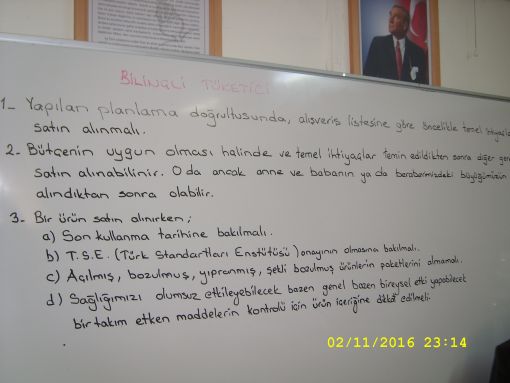 BİLİNÇLİ TÜKETİCİ
1- Yapılan planlama doğrultusunda, alışveriş listesine göre öncelikle temel ihtiyaçla
satın alınmalı.
2- Bütçenin uygun olması halinde ve temel ihtiyaçlar temin edildikten sonra diğer
satın alınabilinir. O da ancak anne ve babanın ya da beraberimizdeki büyüğümüzün
alındıktan sonra olabilir.
3- Bir ürün satın alınırken;
a) Son kullanma tarihine bakılmalı.
b) T.S.E. (Türk Standartları Enstütüsü) onayının olmasına bakılmalı.
c) Açılmış, bozulmuş, yıpranmış, şekli bozulmuş ürünlerin paketlerini almamalı.
d) Sağlığımızı olumsuz etkileyebilecek bazen genel bazen bireysel etki yapabilecek
bir takım etken maddelerin kontrolü için ürün içeriğine dikkat edilmeli.
02/11/2016 23:14